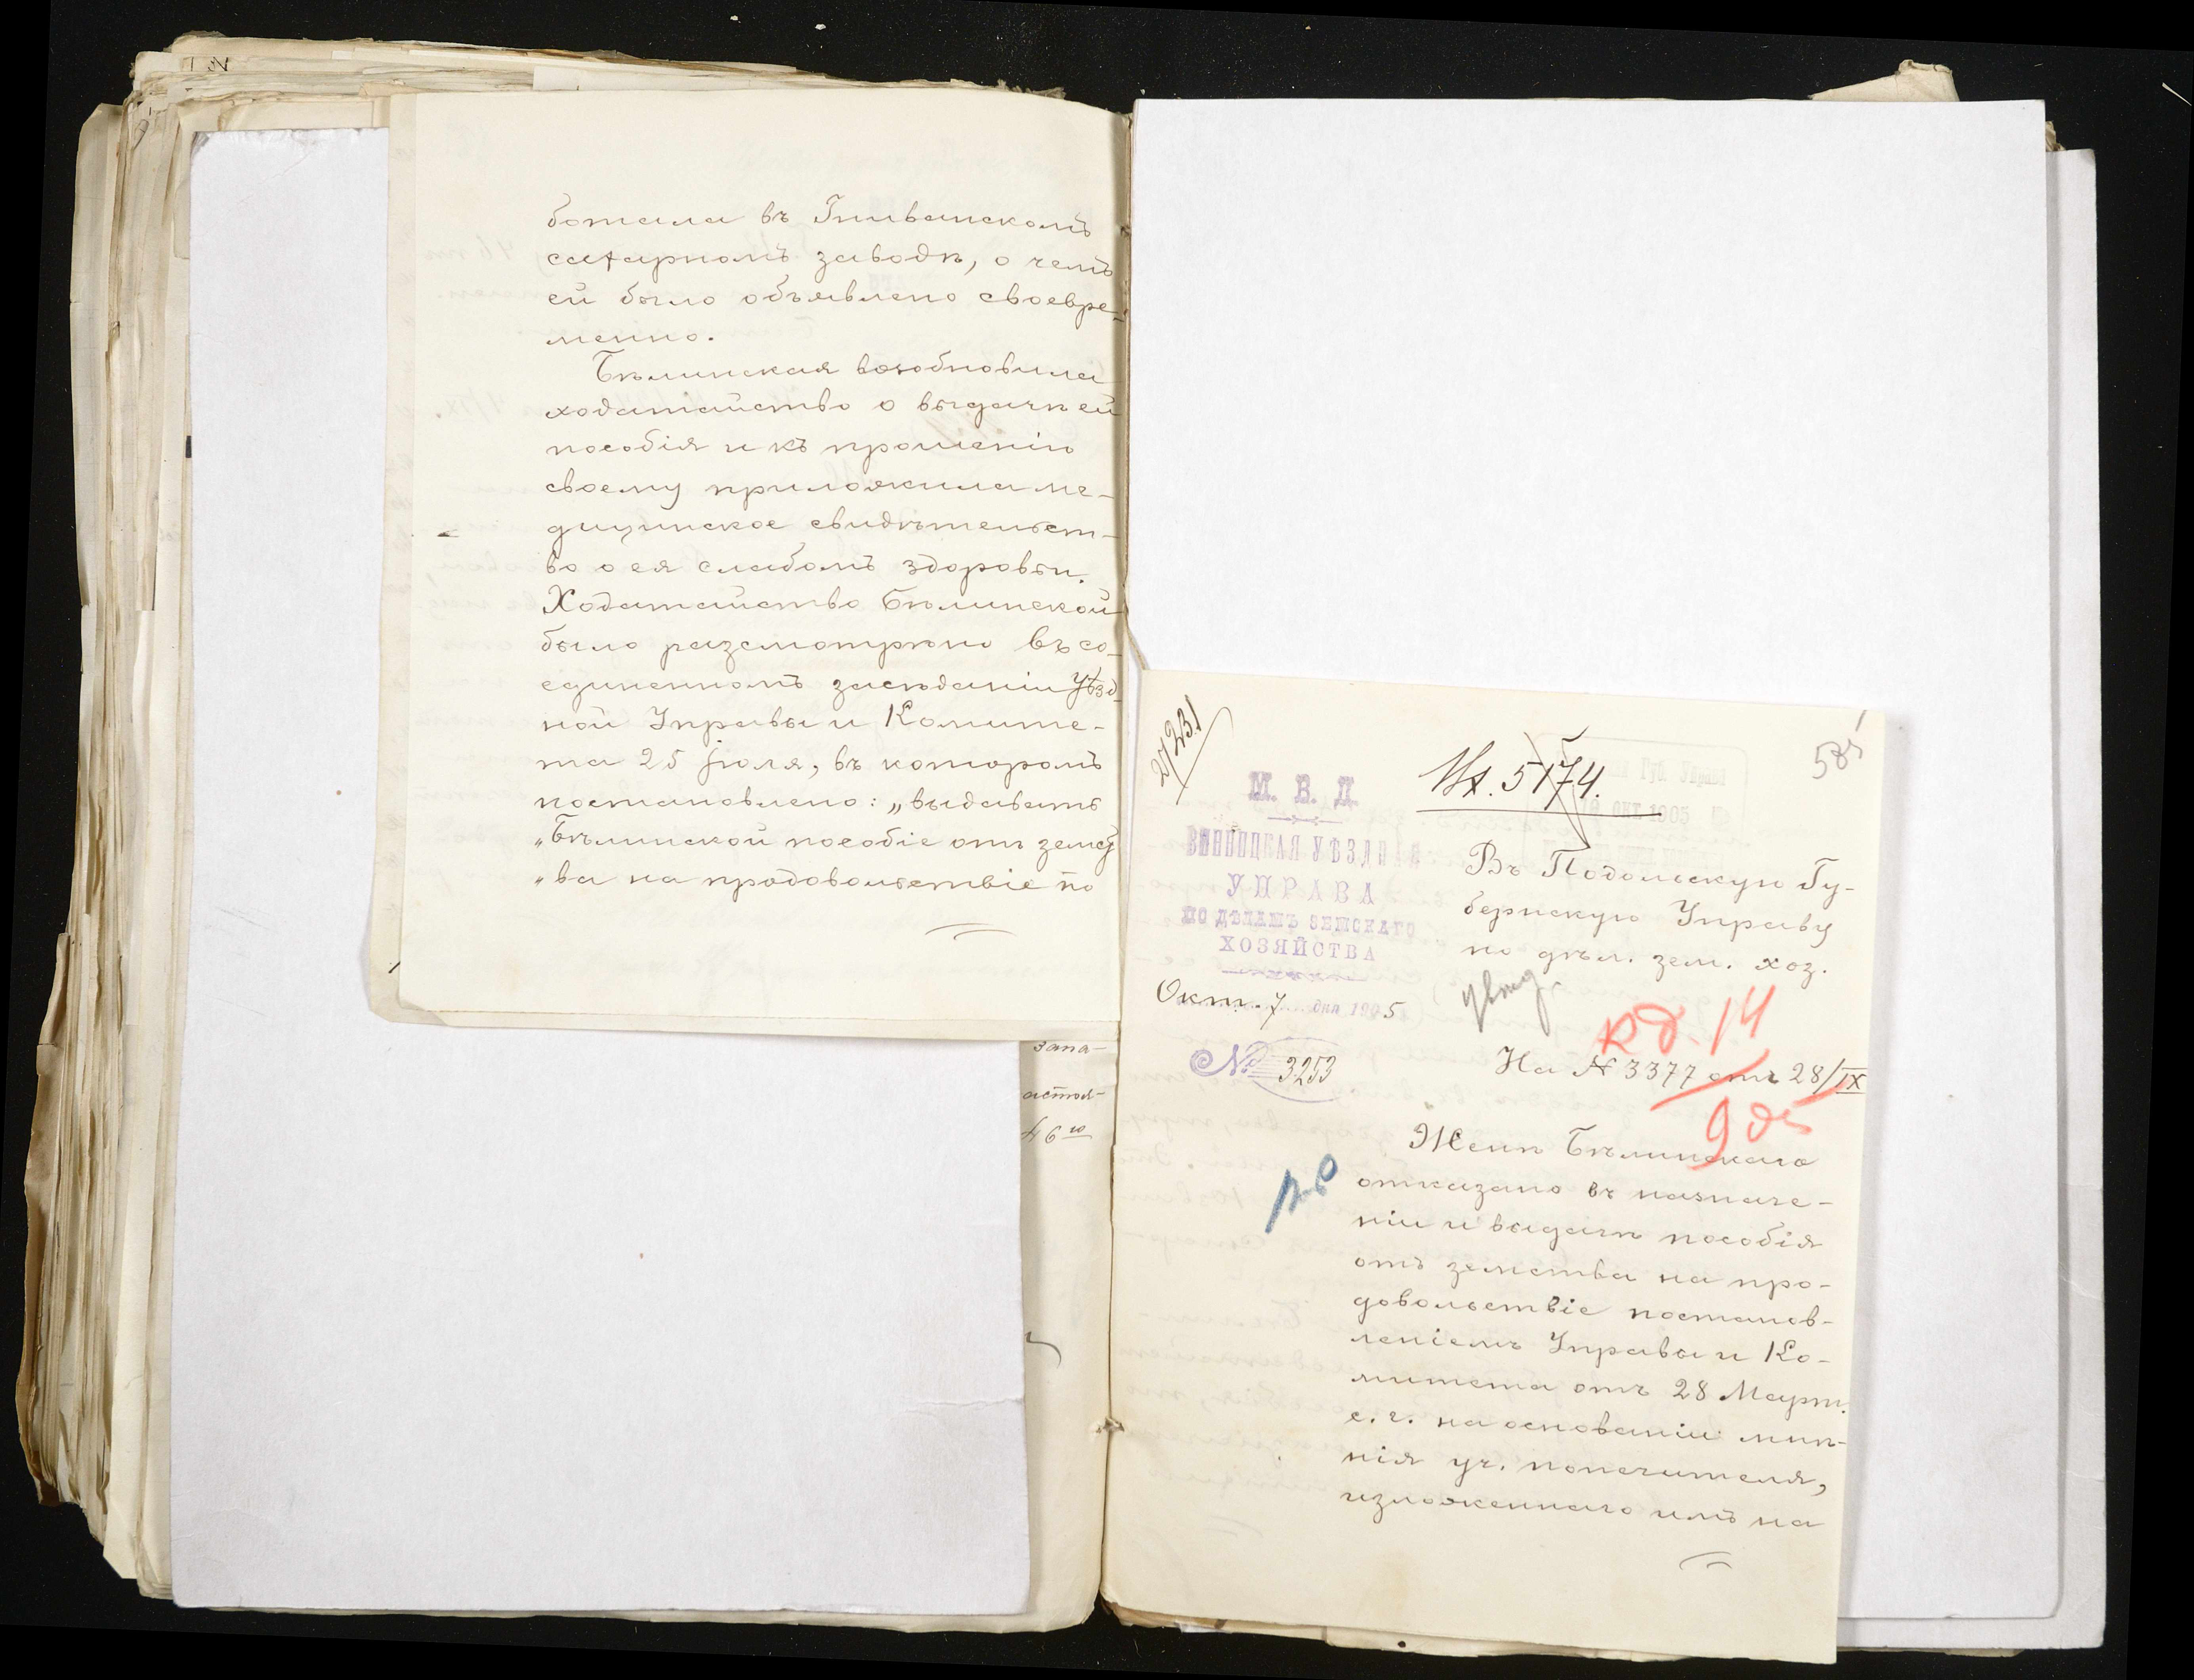 ботала въ Гниванскомъ
сахарномъ заводѣ, о чемъ
ей было объявлено своевре-
менно.
Бѣлинская возобновила
ходатайство о выдачѣ ей
пособія и къ прошенію
своему приложила ме-
дицинское свидѣтельст-
во о ея слабомъ здоровьи.
Ходатайство Бѣлинской
было разсмотрѣно въ со-
единенномъ засѣданіи Уѣзд
ной Управы и Комите-
та 25 Іюля, въ которомъ
постановлено: „выдавать
„Бѣлинской пособіе отъ земст
„ва на продовольствіе по
запа-
астоя-
46
2/231
585
5174.
Губ. Управ
окт. 1905
М. В. Д.
ВИННИЦКАЯ УѢЗДНАЯ
УПРАВА
ПО ДѢЛАМЪ ЗЕМСКАГО
ХОЗЯЙСТВА
Окт. 7 дня 1905
№ 3253
Въ Подольскую Гу-
бернскую Управу
по дѣл. зем. хоз.
На № 3377 отъ 28/IX
Женѣ Бѣлинскаго
отказано въ назначе-
ніи и выдачѣ пособія
отъ земства на про-
довольствіе постанов-
леніемъ Управы и Ко-
митета отъ 28 Март.
с. г. на основаніи мнѣ-
нія уч. попечителя,
изложеннаго имъ на